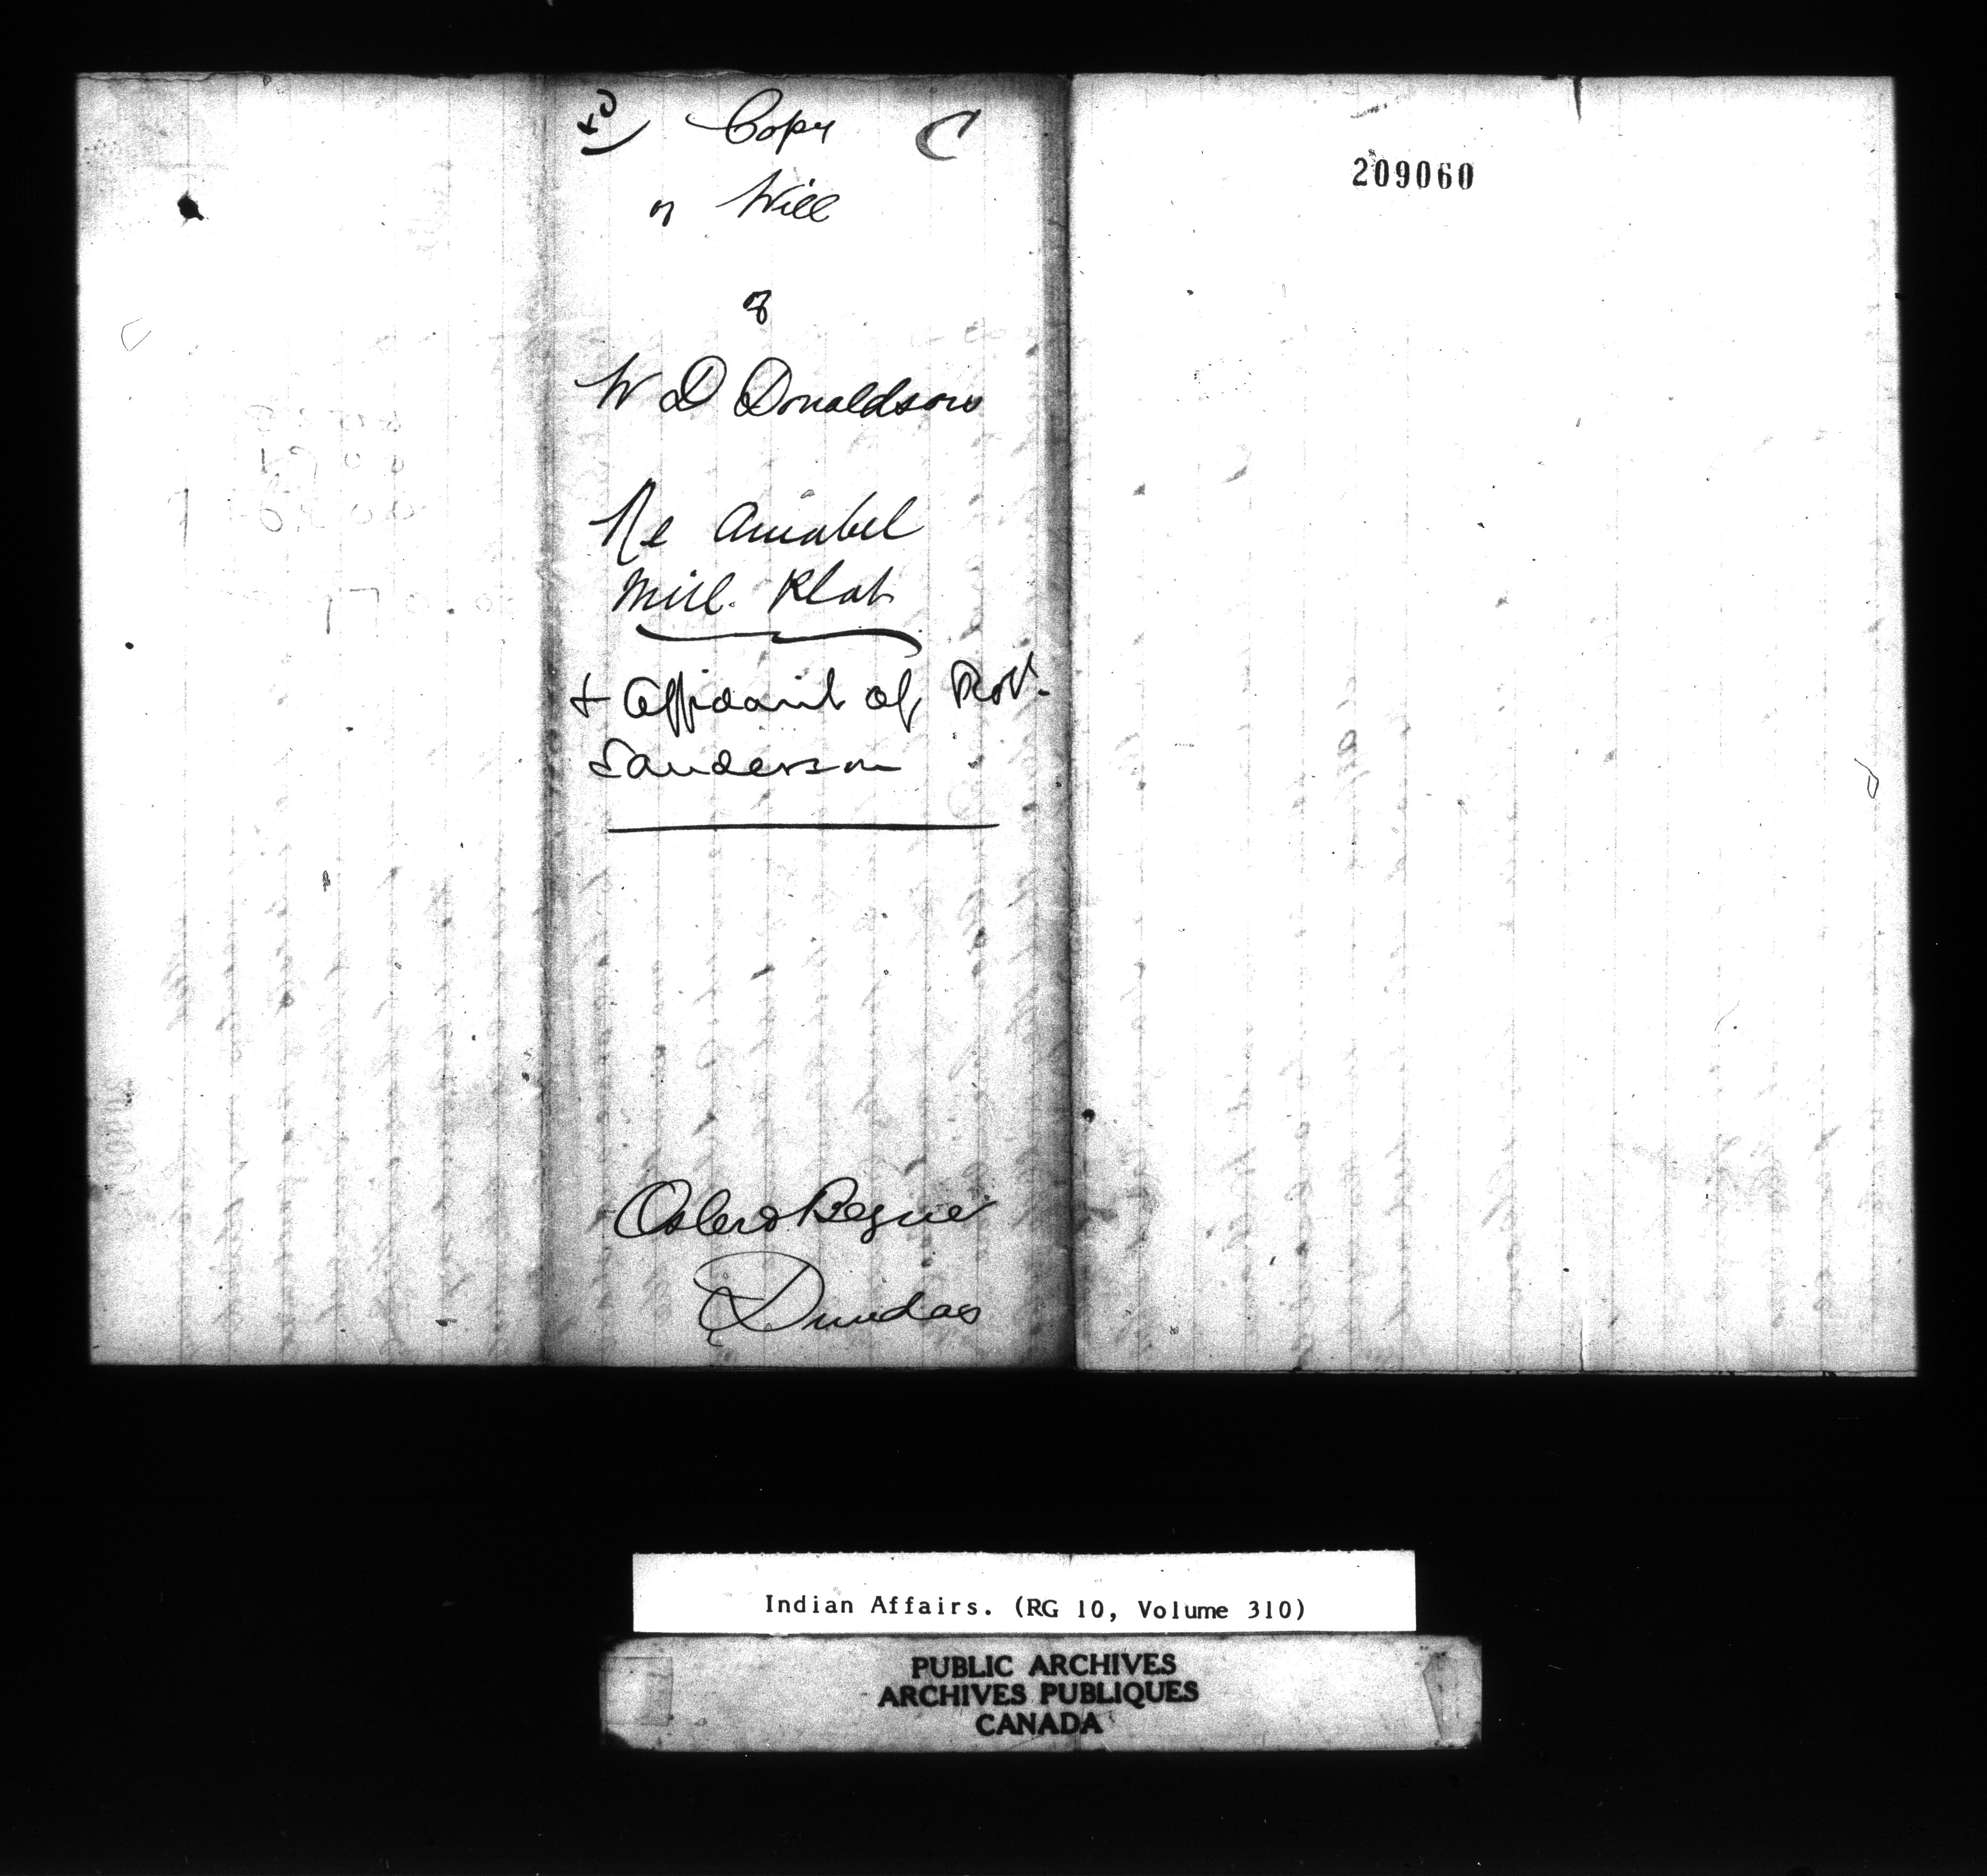 Copy C
of Will
of
W D Donaldson
Re Amabel
Mill. Plot
& Affidavit of Rob.
Sanderson
Osler & Begue
Dundas
209060
Indian Affairs. (RG 10, Volume 310)
PUBLIC ARCHIVES
ARCHIVES PUBLIQUES
CANADA